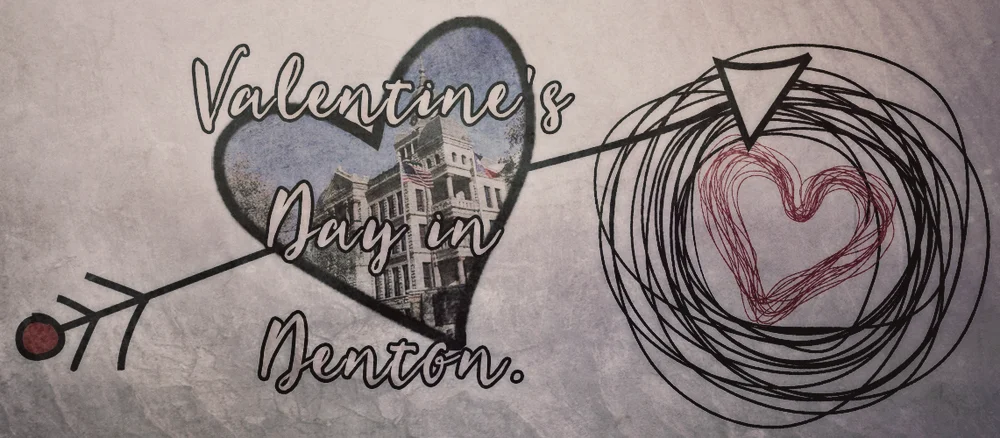 Valentine's
Day in
Denton.